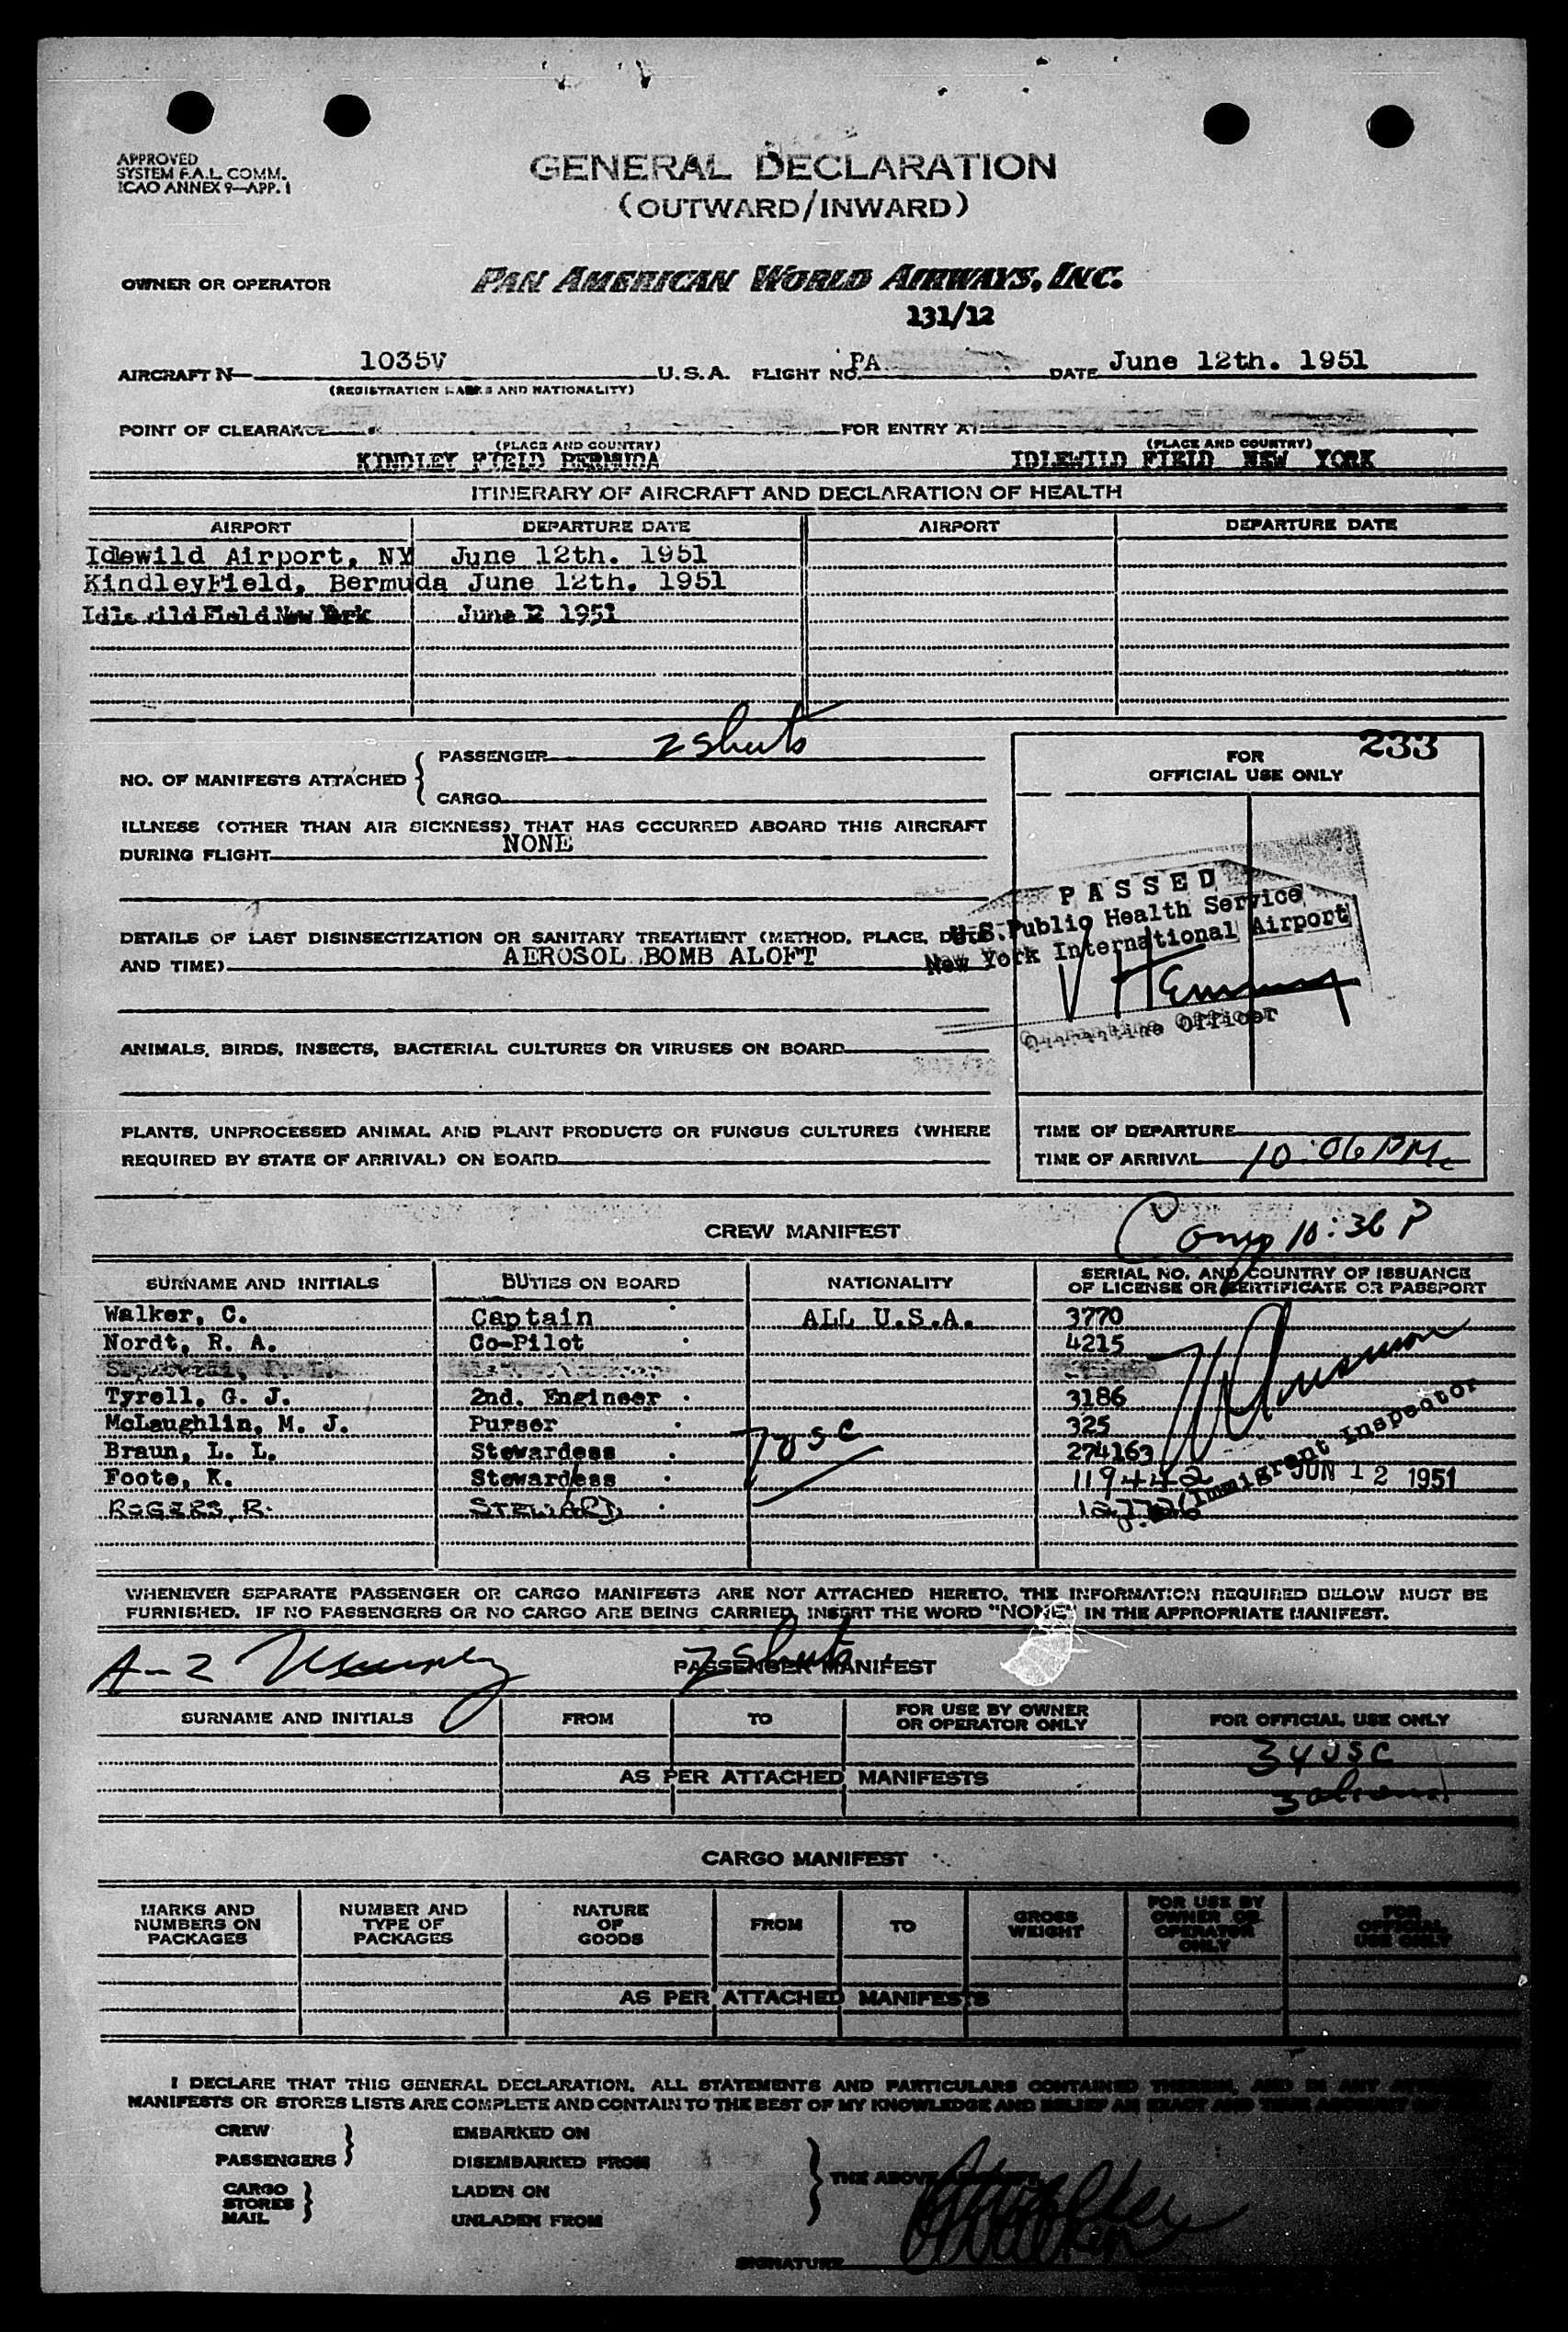 APPROVED
SYSTEM F.A.L. COMM.
ICAO ANNEX 9—APP. 1
GENERAL DECLARATION
(OUTWARD/INWARD)
OWNER OR OPERATOR PAN AMERICAN WORLD AIRWAYS, INC.
131/12
AIRCRAFT N— 1035V U.S.A. FLIGHT NO. PA DATE June 12th. 1951
(REGISTRATION MARKS AND NATIONALITY)
POINT OF CLEARANCE FOR ENTRY AT
(PLACE AND COUNTRY) (PLACE AND COUNTRY)
KINDLEY FIELD BERMUDA IDLEWILD FIELD NEW YORK
ITINERARY OF AIRCRAFT AND DECLARATION OF HEALTH
AIRPORT DEPARTURE DATE AIRPORT DEPARTURE DATE
Idewild Airport, NY June 12th. 1951
KindleyField, Bermuda June 12th. 1951
Idlewild Field New York June 12 1951
NO. OF MANIFESTS ATTACHED { PASSENGER 2 sheets
CARGO
FOR
OFFICIAL USE ONLY
233
ILLNESS (OTHER THAN AIR SICKNESS) THAT HAS OCCURRED ABOARD THIS AIRCRAFT
DURING FLIGHT NONE
PASSED
U.S. Public Health Service
New York International Airport
Quarantine Officer
DETAILS OF LAST DISINSECTIZATION OR SANITARY TREATMENT (METHOD, PLACE, DATE
AND TIME) AEROSOL BOMB ALOFT
ANIMALS, BIRDS, INSECTS, BACTERIAL CULTURES OR VIRUSES ON BOARD
PLANTS, UNPROCESSED ANIMAL AND PLANT PRODUCTS OR FUNGUS CULTURES (WHERE
REQUIRED BY STATE OF ARRIVAL) ON BOARD
TIME OF DEPARTURE
TIME OF ARRIVAL 10:06 PM
CREW MANIFEST
10:36 P
SURNAME AND INITIALS DUTIES ON BOARD NATIONALITY SERIAL NO. AND COUNTRY OF ISSUANCE
OF LICENSE OR CERTIFICATE OR PASSPORT
Walker, C. Captain ALL U.S.A. 3770
Nordt, R. A. Co-Pilot 4215
Tyrell, G. J. 2nd. Engineer 3186
McLaughlin, M. J. Purser 325
Braun, L. L. Stewardess 7 USC 274163
Foote, K. Stewardess 119442
ROGERS, R. STEWARD
Immigrant Inspector
JUN 12 1951
WHENEVER SEPARATE PASSENGER OR CARGO MANIFESTS ARE NOT ATTACHED HERETO, THE INFORMATION REQUIRED BELOW MUST BE
FURNISHED. IF NO PASSENGERS OR NO CARGO ARE BEING CARRIED, INSERT THE WORD "NONE" IN THE APPROPRIATE MANIFEST.
A-2 2 sheets
PASSENGER MANIFEST
SURNAME AND INITIALS FROM TO FOR USE BY OWNER
OR OPERATOR ONLY FOR OFFICIAL USE ONLY
34 USC
AS PER ATTACHED MANIFESTS
CARGO MANIFEST
MARKS AND
NUMBERS ON
PACKAGES NUMBER AND
TYPE OF
PACKAGES NATURE
OF
GOODS FROM TO GROSS
WEIGHT FOR USE BY
OWNER OR
OPERATOR
ONLY FOR
OFFICIAL
USE ONLY
AS PER ATTACHED MANIFESTS
I DECLARE THAT THIS GENERAL DECLARATION, ALL STATEMENTS AND PARTICULARS CONTAINED THEREIN, AND IN ANY
MANIFESTS OR STORES LISTS ARE COMPLETE AND CONTAIN TO THE BEST OF MY KNOWLEDGE AND BELIEF AN EXACT AND TRUE
CREW EMBARKED ON
PASSENGERS DISEMBARKED FROM THE ABOVE
CARGO LADEN ON
STORES
MAIL UNLADEN FROM
SIGNATURE